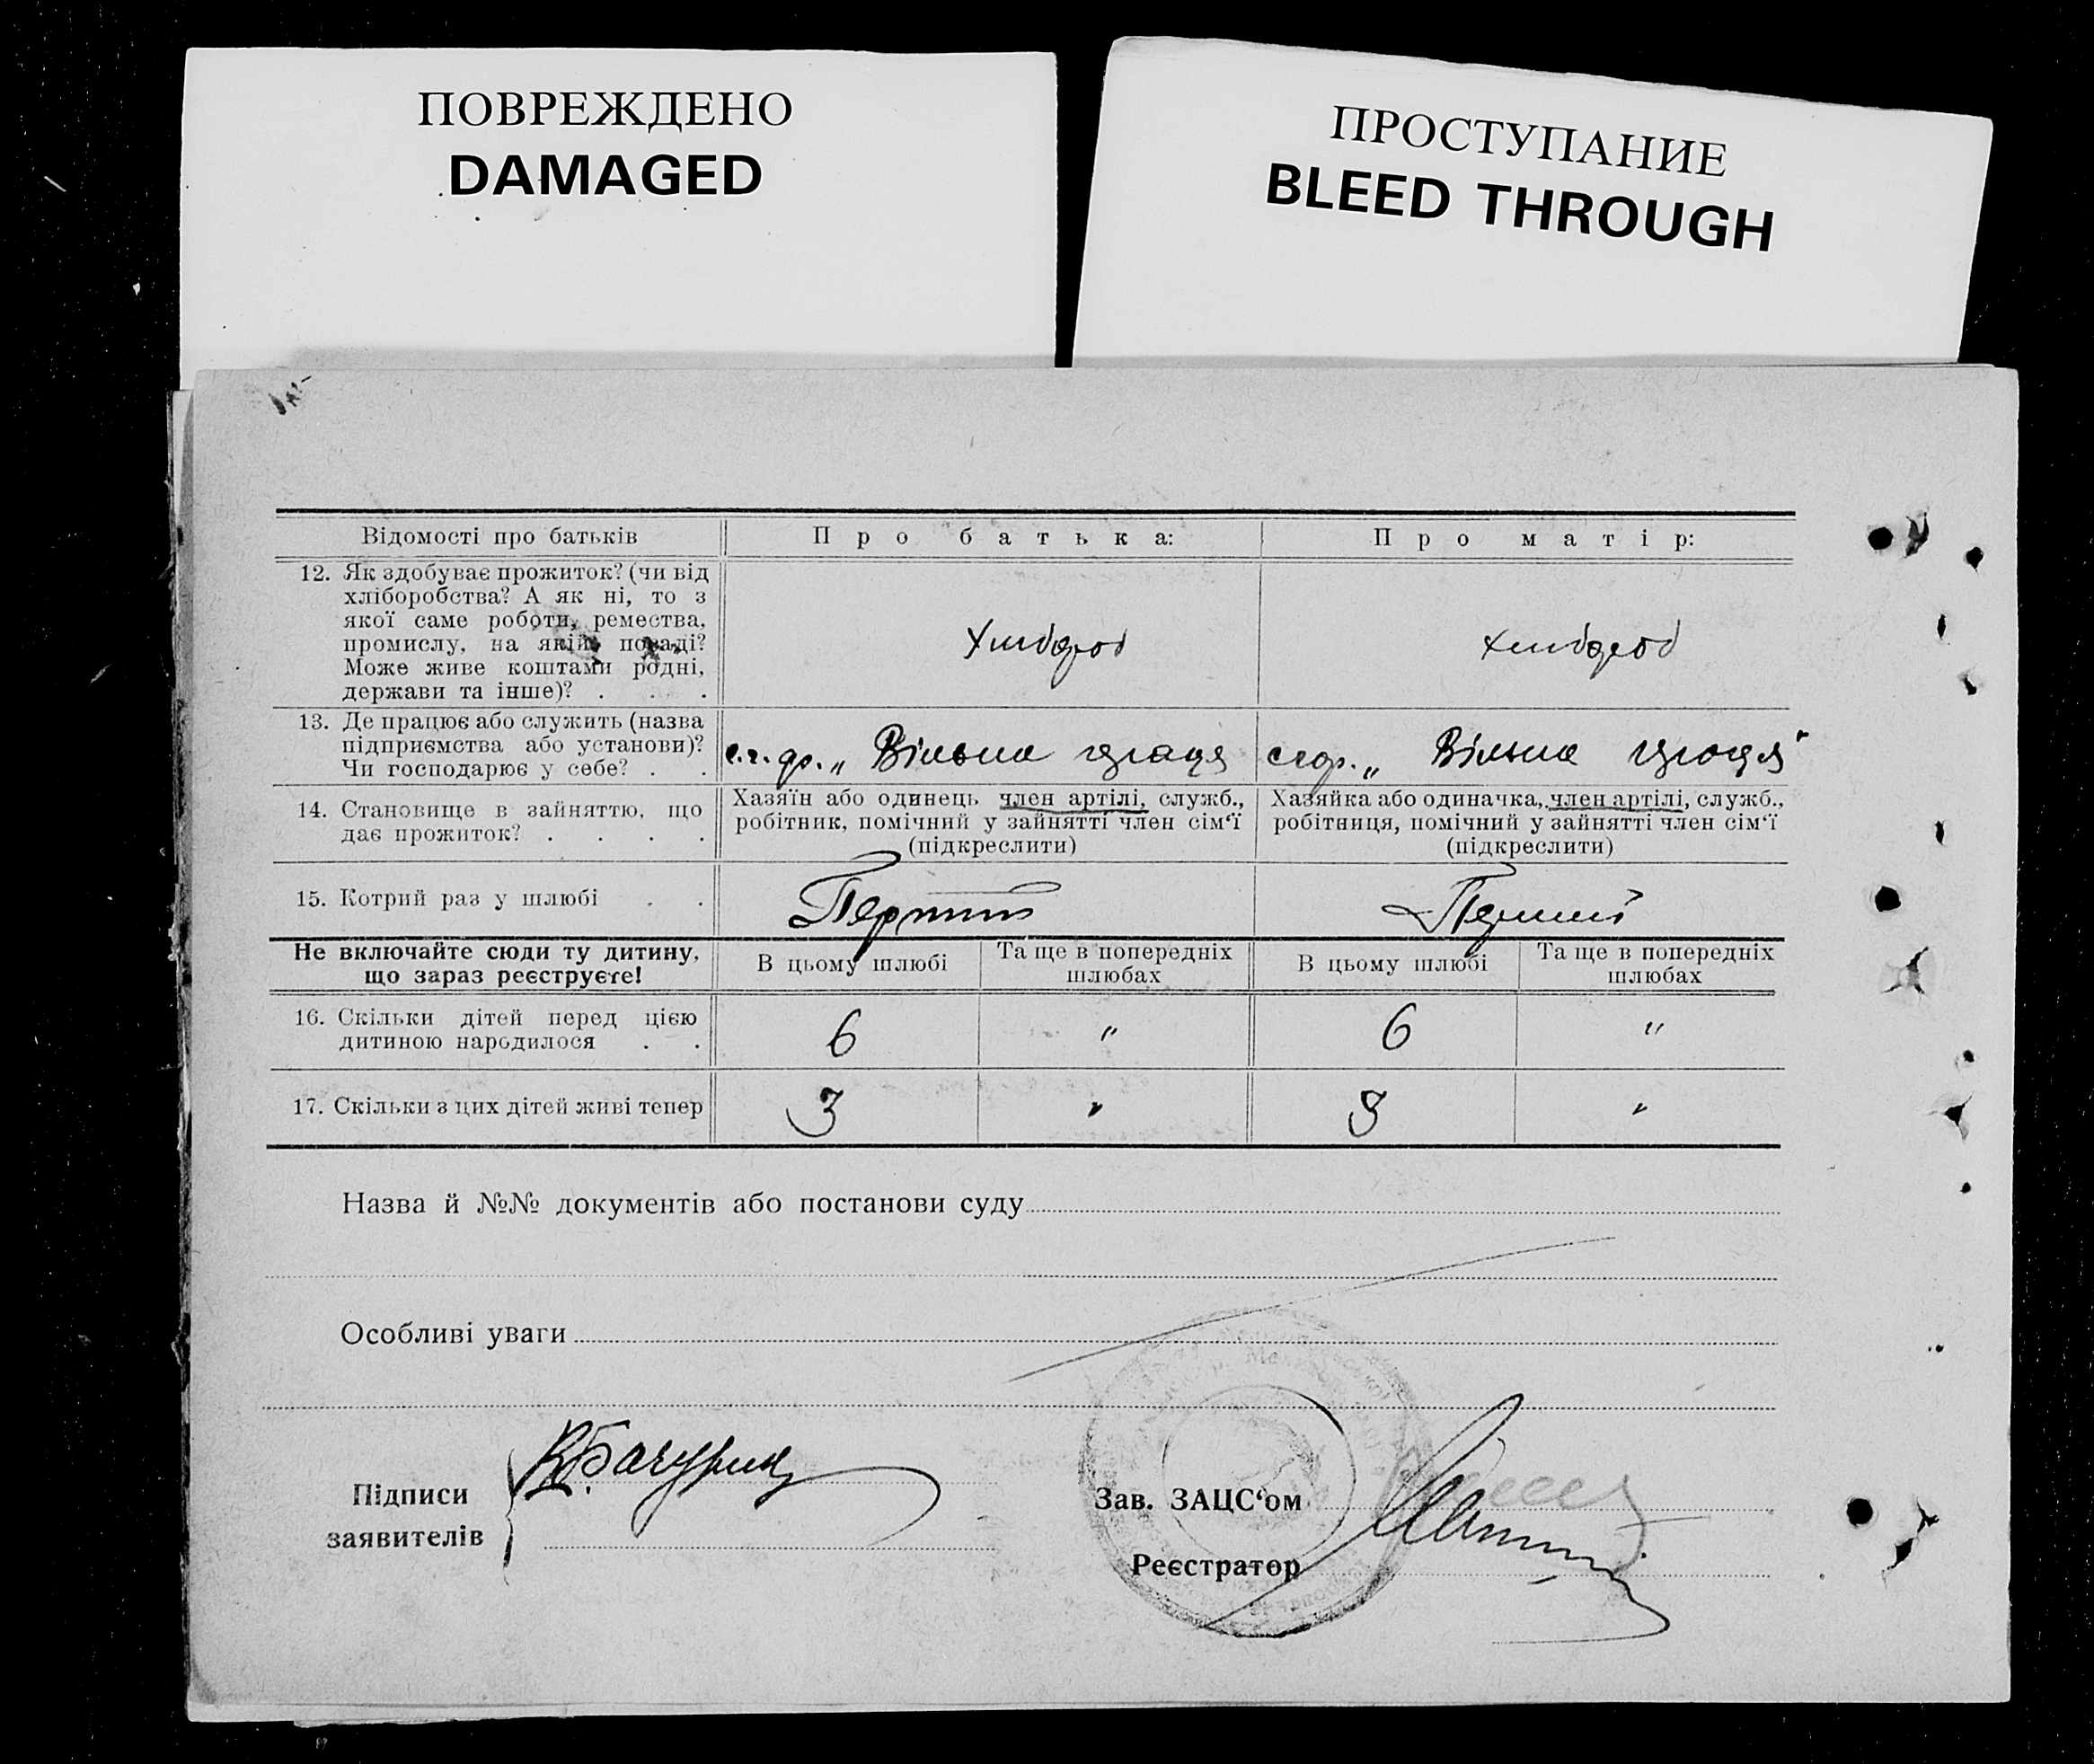 ПОВРЕЖДЕНО
DAMAGED
ПРОСТУПАНИЕ
BLEED THROUGH
Відомості про батьків
Про батька:
Про матір:
12. Як здобуває прожиток? (чи від
хліборобства? А як ні, то з
якої саме роботи, ремества,
промислу, на якій посаді?
Може живе коштами родні,
держави та інше)? . . .
Хлібороб
хлібороб
13. Де працює або служить (назва
підприємства або установи)?
Чи господарює у себе? . .
„ Вільна праця
„ Вільна праця"
14. Становище в зайняттю, що
дає прожиток? . . . .
Хазяїн або одинець член артілі, служб.,
робітник, помічний у зайнятті член сім'ї
(підкреслити)
Хазяйка або одиначка, член артілі, служб.,
робітниця, помічний у зайнятті член сім'ї
(підкреслити)
15. Котрий раз у шлюбі . .
Перший
Перший
Не включайте сюди ту дитину,
що зараз реєструєте!
В цьому шлюбі
Та ще в попередніх
шлюбах
В цьому шлюбі
Та ще в попередніх
шлюбах
16. Скільки дітей перед цією
дитиною народилося . .
6
"
6
"
17. Скільки з цих дітей живі тепер
3
"
"
Назва й №№ документів або постанови суду
Особливі уваги
Підписи
заявителів
Зав. ЗАЦС'ом
Реєстратор